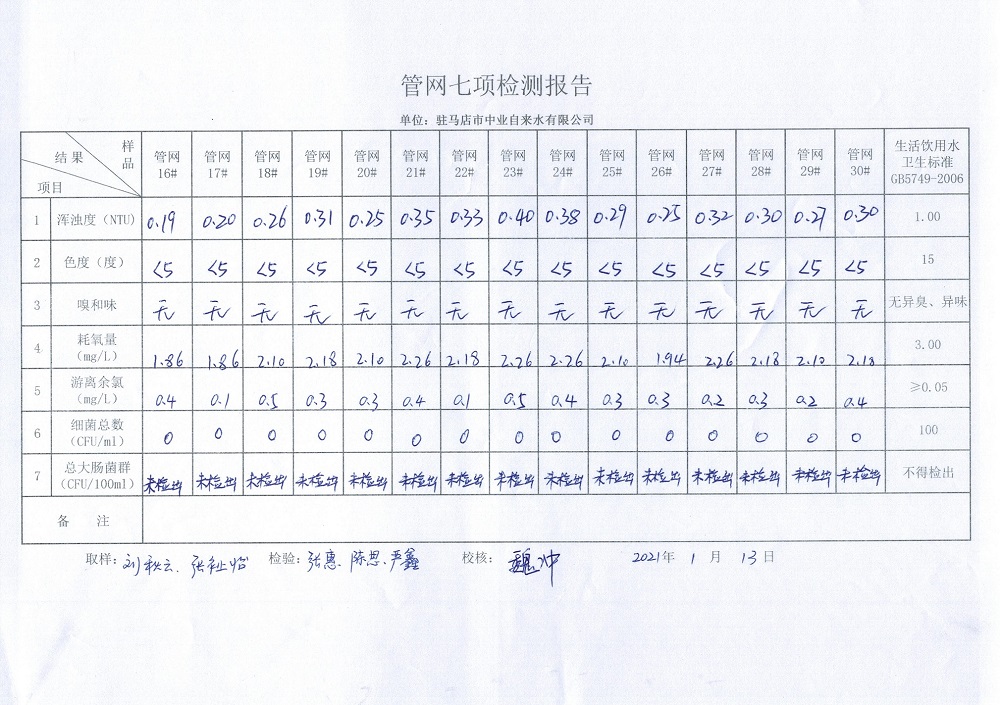 管网七项检测报告
单位：驻马店市中业自来水有限公司
样品 结果 项目 管网16# 管网17# 管网18# 管网19# 管网20# 管网21# 管网22# 管网23# 管网24# 管网25# 管网26# 管网27# 管网28# 管网29# 管网30# 生活饮用水卫生标准GB5749-2006
1 浑浊度（NTU) 0.19 0.20 0.26 0.31 0.25 0.35 0.33 0.40 0.38 0.29 0.25 0.32 0.30 0.27 0.30 1.00
2 色度（度） <5 <5 <5 <5 <5 <5 <5 <5 <5 <5 <5 <5 <5 <5 <5 15
3 嗅和味 无 无 无 无 无 无 无 无 无 无 无 无 无 无 无 无异臭、异味
4 耗氧量（mg/L） 1.86 1.86 2.10 2.18 2.10 2.26 2.18 2.26 2.26 2.10 1.94 2.26 2.18 2.10 2.18 3.00
5 游离余氯（mg/L） 0.4 0.1 0.5 0.3 0.3 0.4 0.1 0.5 0.4 0.3 0.3 0.2 0.3 0.2 0.4 ≥0.05
6 细菌总数（CFU/ml） 0 0 0 0 0 0 0 0 0 0 0 0 0 0 0 100
7 总大肠菌群（CFU/100ml） 未检出 未检出 未检出 未检出 未检出 未检出 未检出 未检出 未检出 未检出 未检出 未检出 未检出 未检出 未检出 不得检出
备 注
取样：刘秋云、张 怡 检验：张惠、陈思、严鑫 校核：魏冲 2021年 1 月 13 日